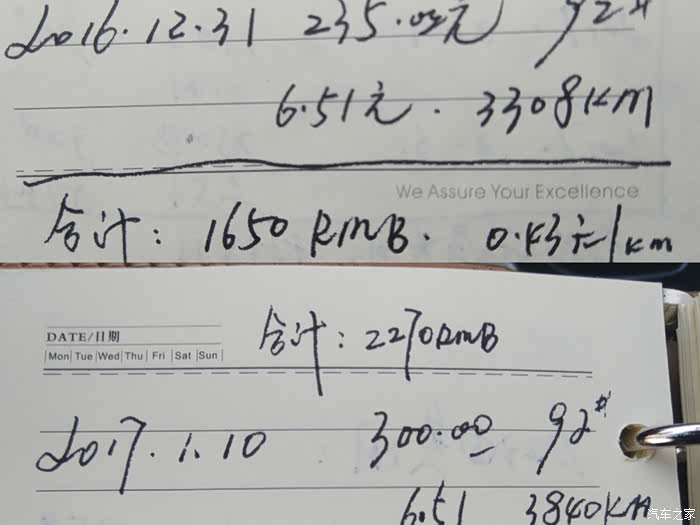 2016.12.31 235.00元 92#
6.51元. 3308KM
We Assure Your Excellence
合计: 1650 RMB. 0.43元/km
DATE/日期
Mon Tue Wed Thu Fri Sat Sun
合计: 2270RMB
2017.1.10 300.00 92#
6.51 3840KM
汽车之家